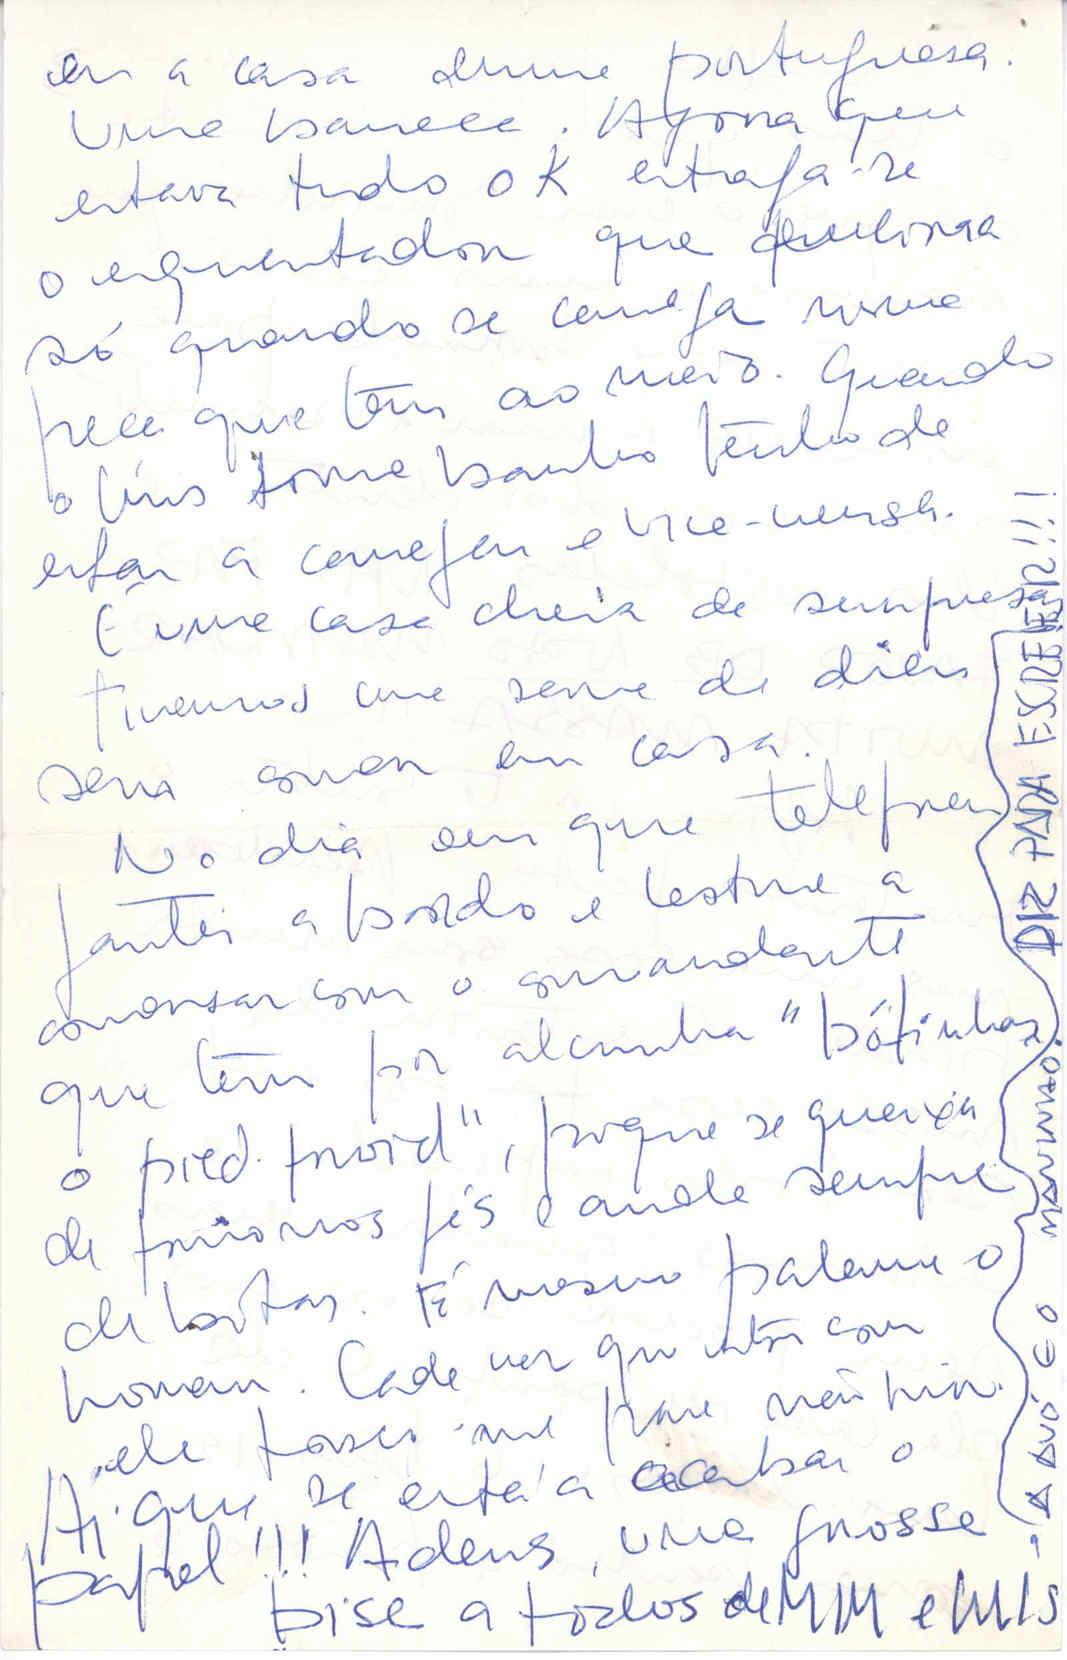 em a casa duma portuguesa.
Uma barraca. Agora que
estava tudo OK estraga-se
o esquentador que
só quando se carrega numa
peça que têm ao meio. Quando
o Luis toma banho tenho de
estar a carregar e vice-versa.
É uma casa cheia de surpresas
tivemos uma série de dias
sem em casa.
No dia em que telefonei
jantei a bordo e estive a
conversar com o comandante
que têm por alcunha "bótinhas
o pied froid", porque se queixa
de frio nos pés e anda sempre
de botas. É mesmo palerma o
homem. Cada vez que estou com
ele torço-me para não rir.
Ai que se está a acabar o
papel!!! Adeus, uma grosse
bise a todos de MIM e LUIS
- A AVÓ E O MANINHO. DIZ PARA ESCREVER!!!